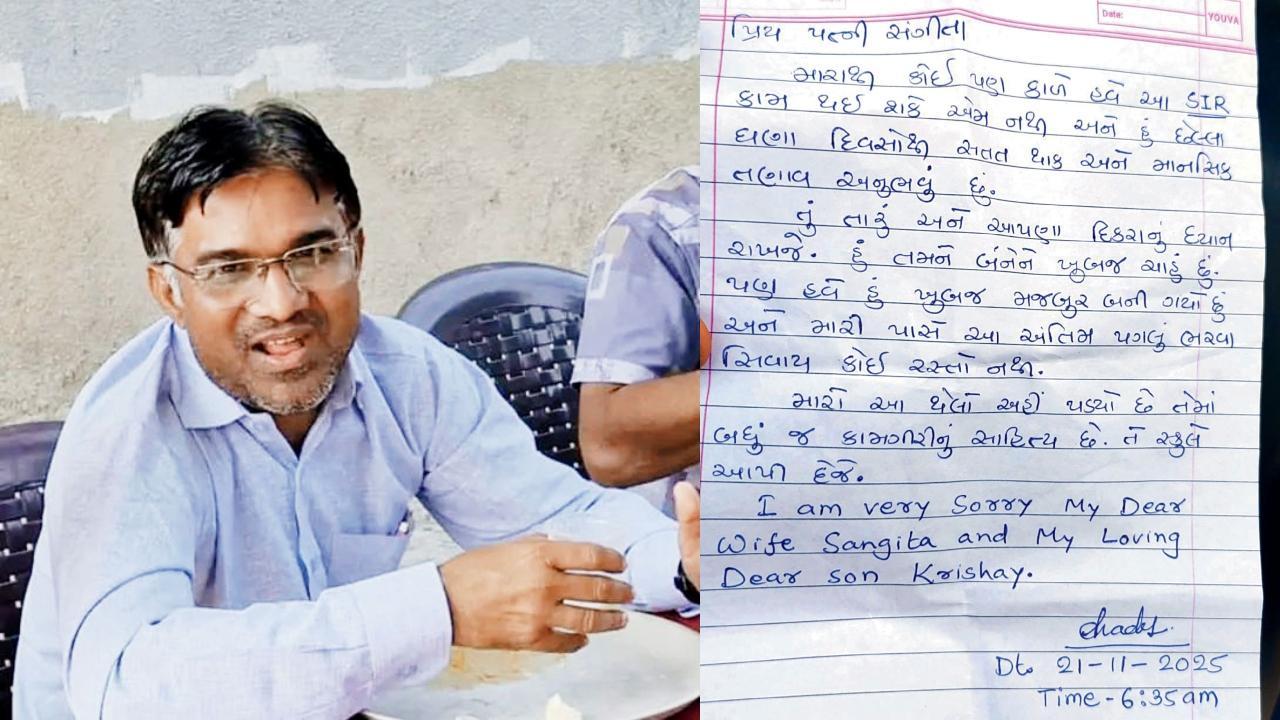 Date:
YOUVA
પ્રિય પત્ની સંગીતા
મારાથી કોઈ પણ કાળે હવે આ SIR
કામ થઈ શકે એમ નથી અને હું છેલ્લા
ઘણા દિવસોથી સતત થાક અને માનસિક
તણાવ અનુભવું છું.
તું તારું અને આપણા દિકરાનું ધ્યાન
રાખજે. હું તમને બંનેને ખુબજ ચાહું છું.
પણ હવે હું ખુબજ મજબુર બની ગયો છું
અને મારી પાસે આ અંતિમ પગલું ભરવા
સિવાય કોઈ રસ્તો નથી.
મારો આ થેલો અહીં પડ્યો છે તેમાં
બધું જ કામગીરીનું સાહિત્ય છે. તે સ્કુલે
આપી દેજે.
I am very Sorry My Dear
Wife Sangita and My Loving
Dear son Krishay.
Dt. 21-11-2025
Time - 6:35am